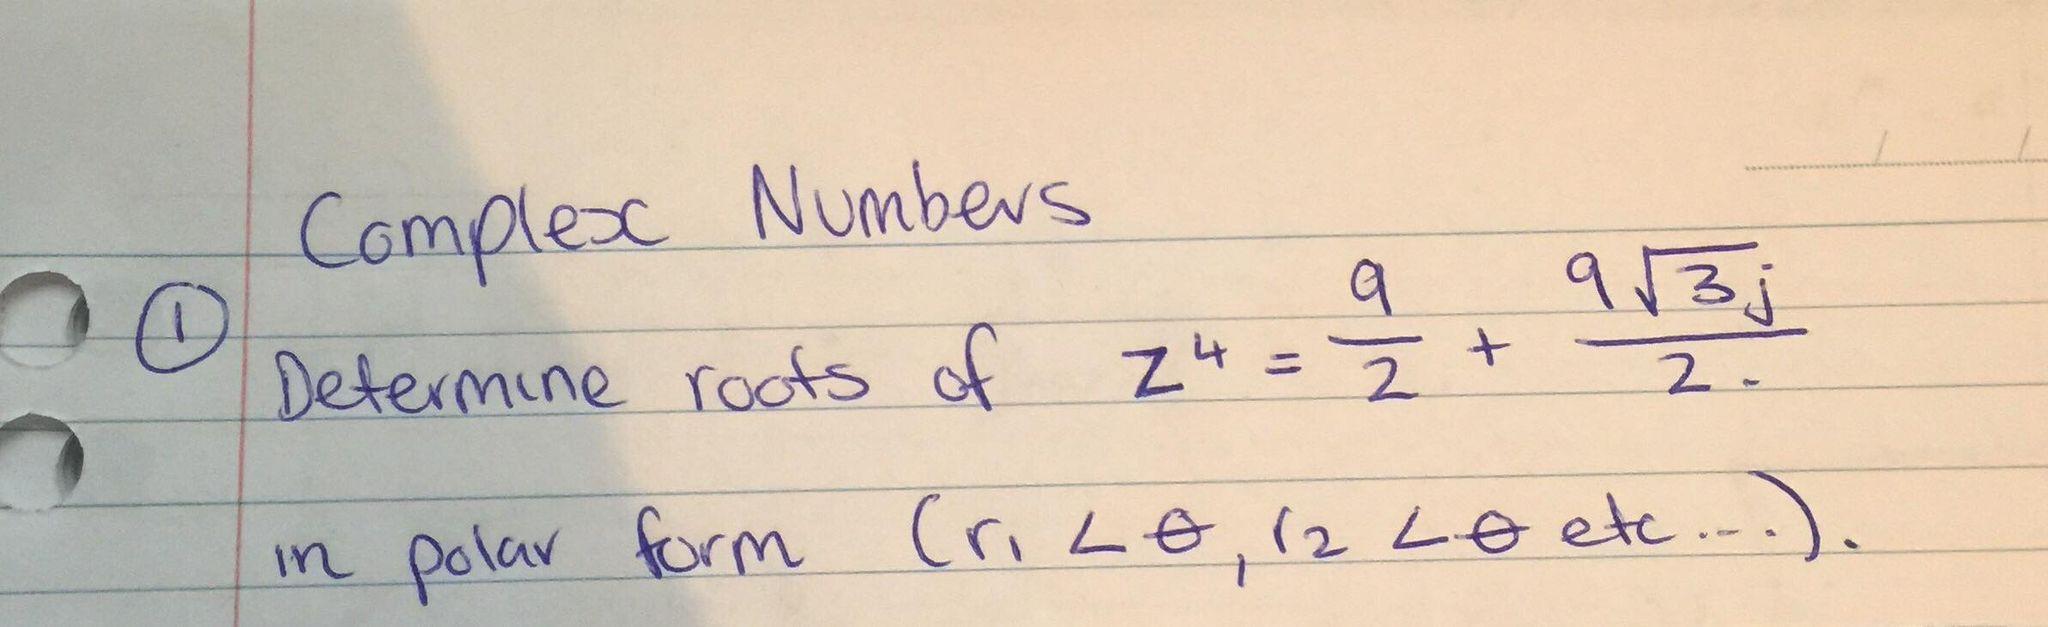 Complex Numbers
① Determine roots of z⁴ = 9/2 + 9√3j/2.
in polar form (r₁ ∠θ, r₂ ∠θ etc...).